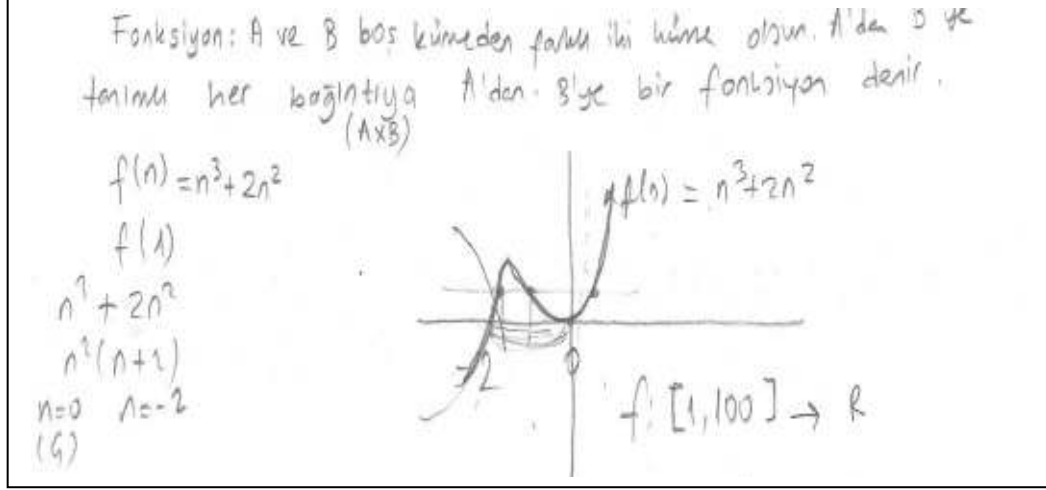 Fonksiyon: A ve B boş kümeden farklı iki küme olsun. A'dan B'ye
tanımlı her bağıntıya A'dan B'ye bir fonksiyon denir.
(AxB)
f(n) = n³+2n²
f(1)
n³ + 2n²
n²(n+2)
n=0 n=-2
(Ç)
f(n) = n³+2n²
-2 0
f: [1,100] → R